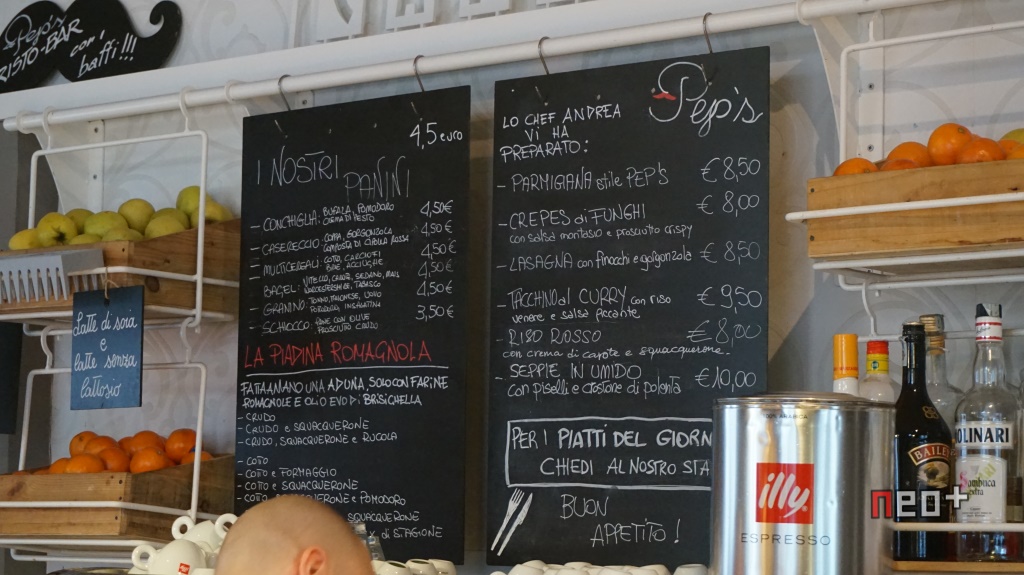 Pep's
RISTO-BAR
con i
baffi!!!
Latte di soia
e
latte senza
lattosio
4,5 euro
I NOSTRI
PANINI
- CONCHIGLIA: BUFALA, POMODORO 4,50€
CREMA DI PESTO
- CASERECCIO: COPPA, GORGONZOLA 4,50€
COMPOSTA DI CIPOLLA ROSSA
- MULTICEREALI: COTO, CARCIOFI 4,50€
BRIE, ACCIUGHE
- BAGEL: VITELLO, SEDANO, MAIS 4,50€
TABASCO
- GRANINO: TONNO, 4,50€
INSALATINA
- SCHIOCCO: PANE CON OLIVE 3,50€
PROSCIUTTO CRUDO
LA PIADINA ROMAGNOLA
FATTA A MANO UNA AD UNA, SOLO CON FARINE
ROMAGNOLE E OLIO EVO DI BRISICHELLA
- CRUDO
- CRUDO E SQUACQUERONE
- CRUDO, SQUACQUERONE E RUCOLA
- COTO
- COTO E FORMAGGIO
- COTO E SQUACQUERONE
- COTO, SQUACQUERONE E POMODORO
SQUACQUERONE
di STAGIONE
Pep's
LO CHEF ANDREA
VI HA
PREPARATO:
- PARMIGIANA stile PEP'S € 8,50
- CREPES di FUNGHI € 8,00
con salsa montasio e prosciutto crispy
- LASAGNA con finocchi e gorgonzola € 8,50
- TACCHINO al CURRY con riso € 9,50
venere e salsa piccante
- RISO ROSSO € 8,00
con crema di carote e squacquerone
- SEPPIE IN UMIDO € 10,00
con piselli e crostone di polenta
PER I PIATTI DEL GIORN
CHIEDI AL NOSTRO STA
BUON
APPETITO!
illy
ESPRESSO
BAILE
MOLINARI
Sambuca
extra
neo+
illy